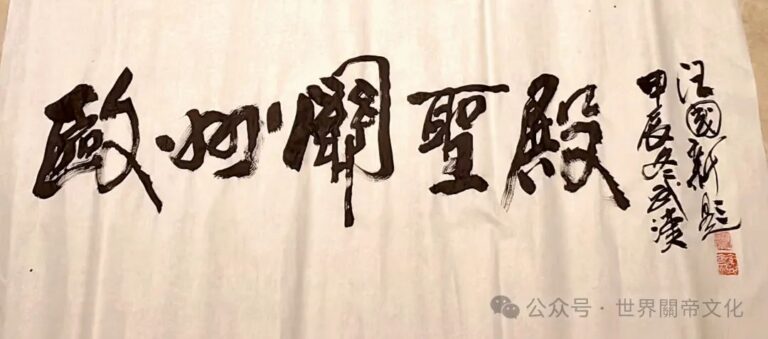 歐洲關聖殿
汪國新題
甲辰冬武漢
公众号·世界關帝文化